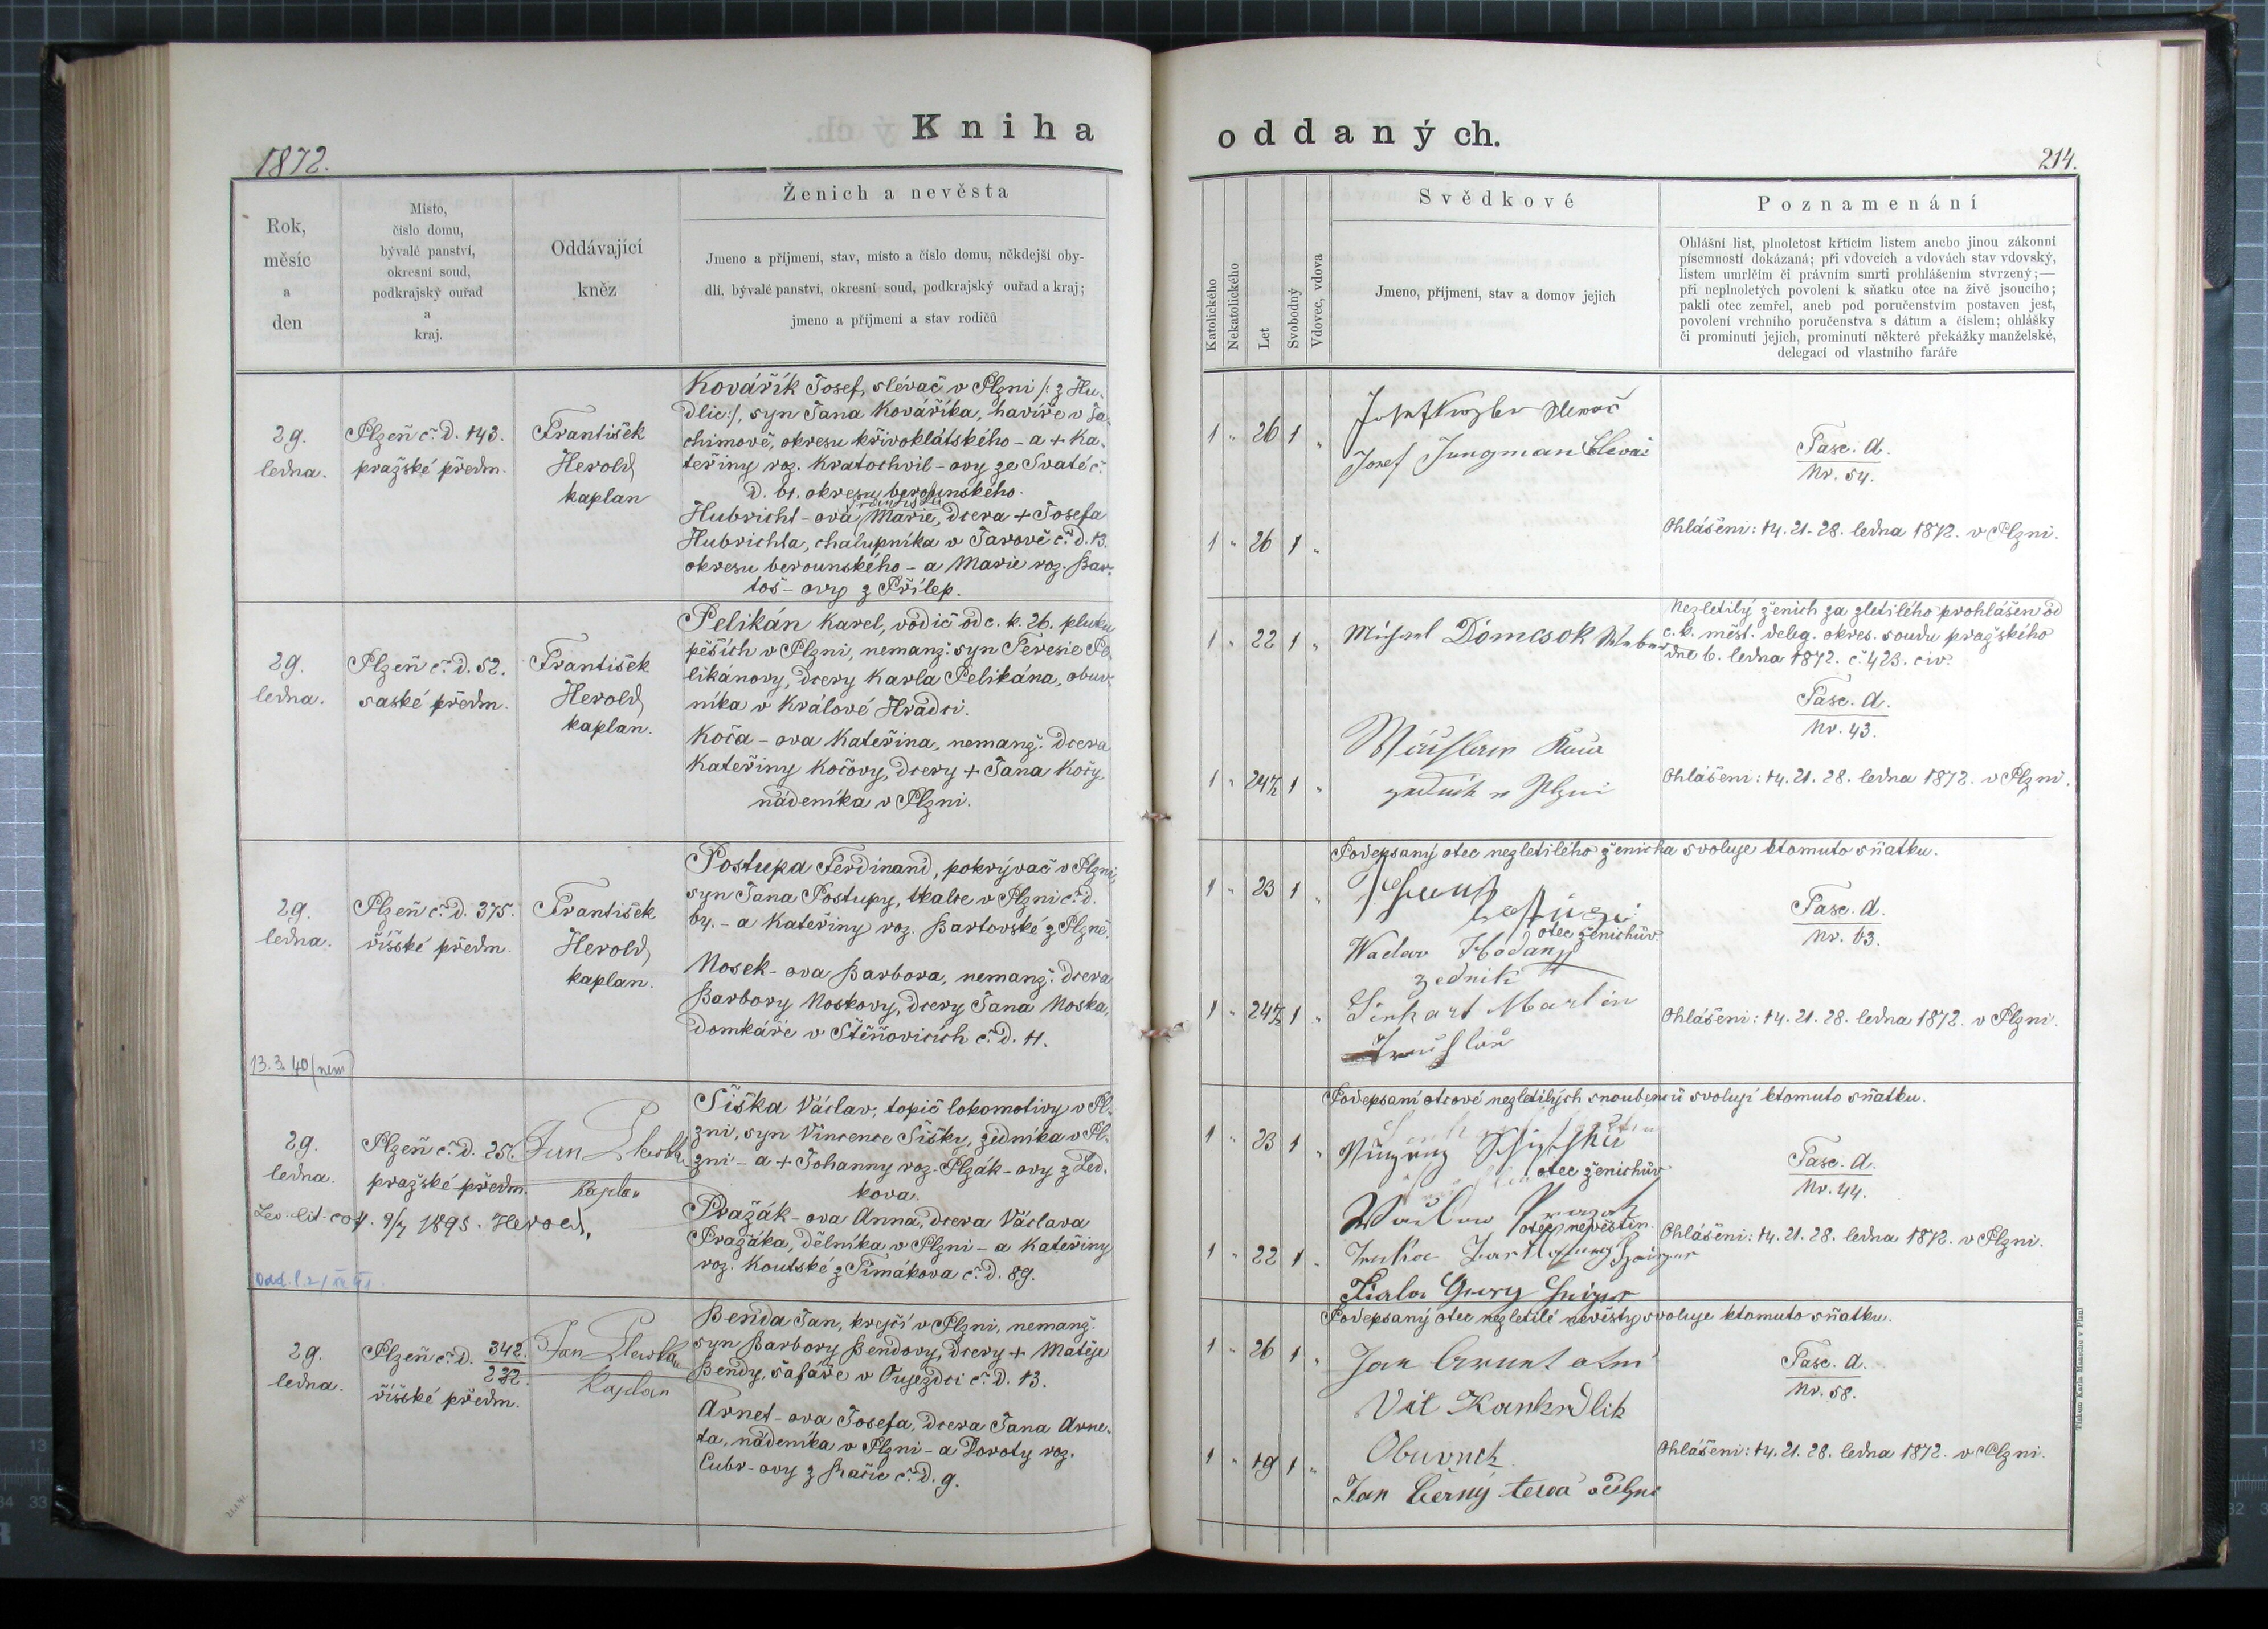 Kniha
oddaných.
1872.
214.
Rok,
měsíc
a
den
Místo,
číslo domu,
bývalé panství,
okresní soud,
podkrajský ouřad
a
kraj.
Oddávající
kněz
Ženich a nevěsta
Jmeno a příjmení, stav, místo a číslo domu, někdejší oby-
dlí, bývalé panství, okresní soud, podkrajský ouřad a kraj;
jmeno a příjmení a stav rodičů
Katolického
Nekatolického
Let
Svobodný
Vdovec, vdova
Svědkové
Jmeno, příjmení, stav a domov jejich
Poznamenání
Ohlášní list, plnoletost křticím listem anebo jinou zákonní
písemností dokázaná; při vdovcích a vdovách stav vdovský,
listem umrlčím či právním smrti prohlášením stvrzený;—
při neplnoletých povolení k sňatku otce na živě jsoucího;
pakli otec zemřel, aneb pod poručenstvím postaven jest,
povolení vrchního poručenstva s dátum a číslem; ohlášky
či prominutí jejich, prominutí některé překážky manželské,
delegací od vlastního faráře
29.
ledna.
Plzeň č. d. 143.
pražské předm.
František
Herold,
kaplan
Kovářík Josef, slévač v Plzni /: z Hu-
dlic:/, syn Jana Kováříka, havíře v Ja-
chimově, okresu křivoklátského - a + Ka-
teřiny roz. Kratochvil-ovy ze Svaté č.
d. 61. okresu berounského.
Františka
Hubricht-ova Marie, dcera + Josefa
Hubrichta, chalupníka v Jarově č. d. 13.
okresu berounského - a Marie roz. Bar-
toš-ovy z Přílep.
1 " 26 1 "
1 " 26 1 "
Josef Jungman Slevač
Fasc. d.
Nr. 54.
Ohlášeni: 14. 21. 28. ledna 1872. v Plzni.
29.
ledna.
Plzeň č. d. 52.
saské předm.
František
Herold,
kaplan.
Pelikán Karel, vodič od c. k. 26. pluku
pěších v Plzni, nemanž. syn Teresie Pe-
likánovy, dcery Karla Pelikána, obuv-
níka v Králové Hradci.
Koča-ova Kateřina, nemanž. dcera
Kateřiny Kočovy, dcery + Jana Koči,
nádeníka v Plzni.
1 " 22 1 "
1 " 24½ 1 "
Michael Domcsok Weber
v Plzni
Nezletilý ženich za zletilého prohlášen od
c. k. měst. deleg. okres. soudu pražského
dne 6. ledna 1872. č. 423. civ.
Fasc. d.
Nr. 43.
Ohlášeni: 14. 21. 28. ledna 1872. v Plzni.
29.
ledna.
Plzeň č. d. 375.
říšské předm.
František
Herold,
kaplan.
Postupa Ferdinand, pokrývač v Plzni,
syn Jana Postupy, tkalce v Plzni č. d.
64. - a Kateřiny roz. Bartovské z Plzně.
Nosek-ova Barbora, nemanž. dcera
Barbory Noskovy, dcery Jana Noska,
domkáře v Štěňovicích č. d. 11.
13.3.40 (nem)
1 " 23 1 "
1 " 24½ 1 "
Podepsaný otec nezletilého ženicha svoluje k tomuto sňatku.
otec ženichův.
Waclav Hodany
zednik
Martin
Fasc. d.
Nr. 63.
Ohlášeni: 14. 21. 28. ledna 1872. v Plzni.
29.
ledna.
Plzeň č. d. 25.
pražské předm.
Kaplan
Šiška Václav, topič lokomotivy v Pl-
zni, syn Vincence Šišky, zedníka v Pl-
zni - a + Johanny roz. Plzák-ovy z Led-
kova.
Pražák-ova Anna, dcera Václava
Pražáka, dělníka v Plzni - a Kateřiny
roz. Koutské z Tímákova č. d. 89.
9/7 1895. Herold,
1 " 23 1 "
1 " 22 1 "
Podepsaní otcové nezletilých snoubenců svolují k tomuto sňatku.
otec ženichův
otec nevěstin.
Fasc. d.
Nr. 44.
Ohlášeni: 14. 21. 28. ledna 1872. v Plzni.
29.
ledna.
Plzeň č. d. 342.
232.
říšské předm.
Kaplan
Benda Jan, krejčí v Plzni, nemanž.
syn Barbory Bendovy, dcery + Matěje
Bendy, šafáře v Oujezdci č. d. 13.
Arnet-ova Josefa, dcera Jana Arne-
ta, nádeníka v Plzni - a Doroty roz.
Cubr-ovy z č. d. 9.
1 " 26 1 "
1 " 19 1 "
Podepsaný otec nezletilé nevěsty svoluje k tomuto sňatku.
Jan
Vít Kankrdlik
Obuvnik
Jan Černý
Fasc. d.
Nr. 58.
Ohlášeni: 14. 21. 28. ledna 1872. v Plzni.
Tiskem Karla Maasche v Plzni